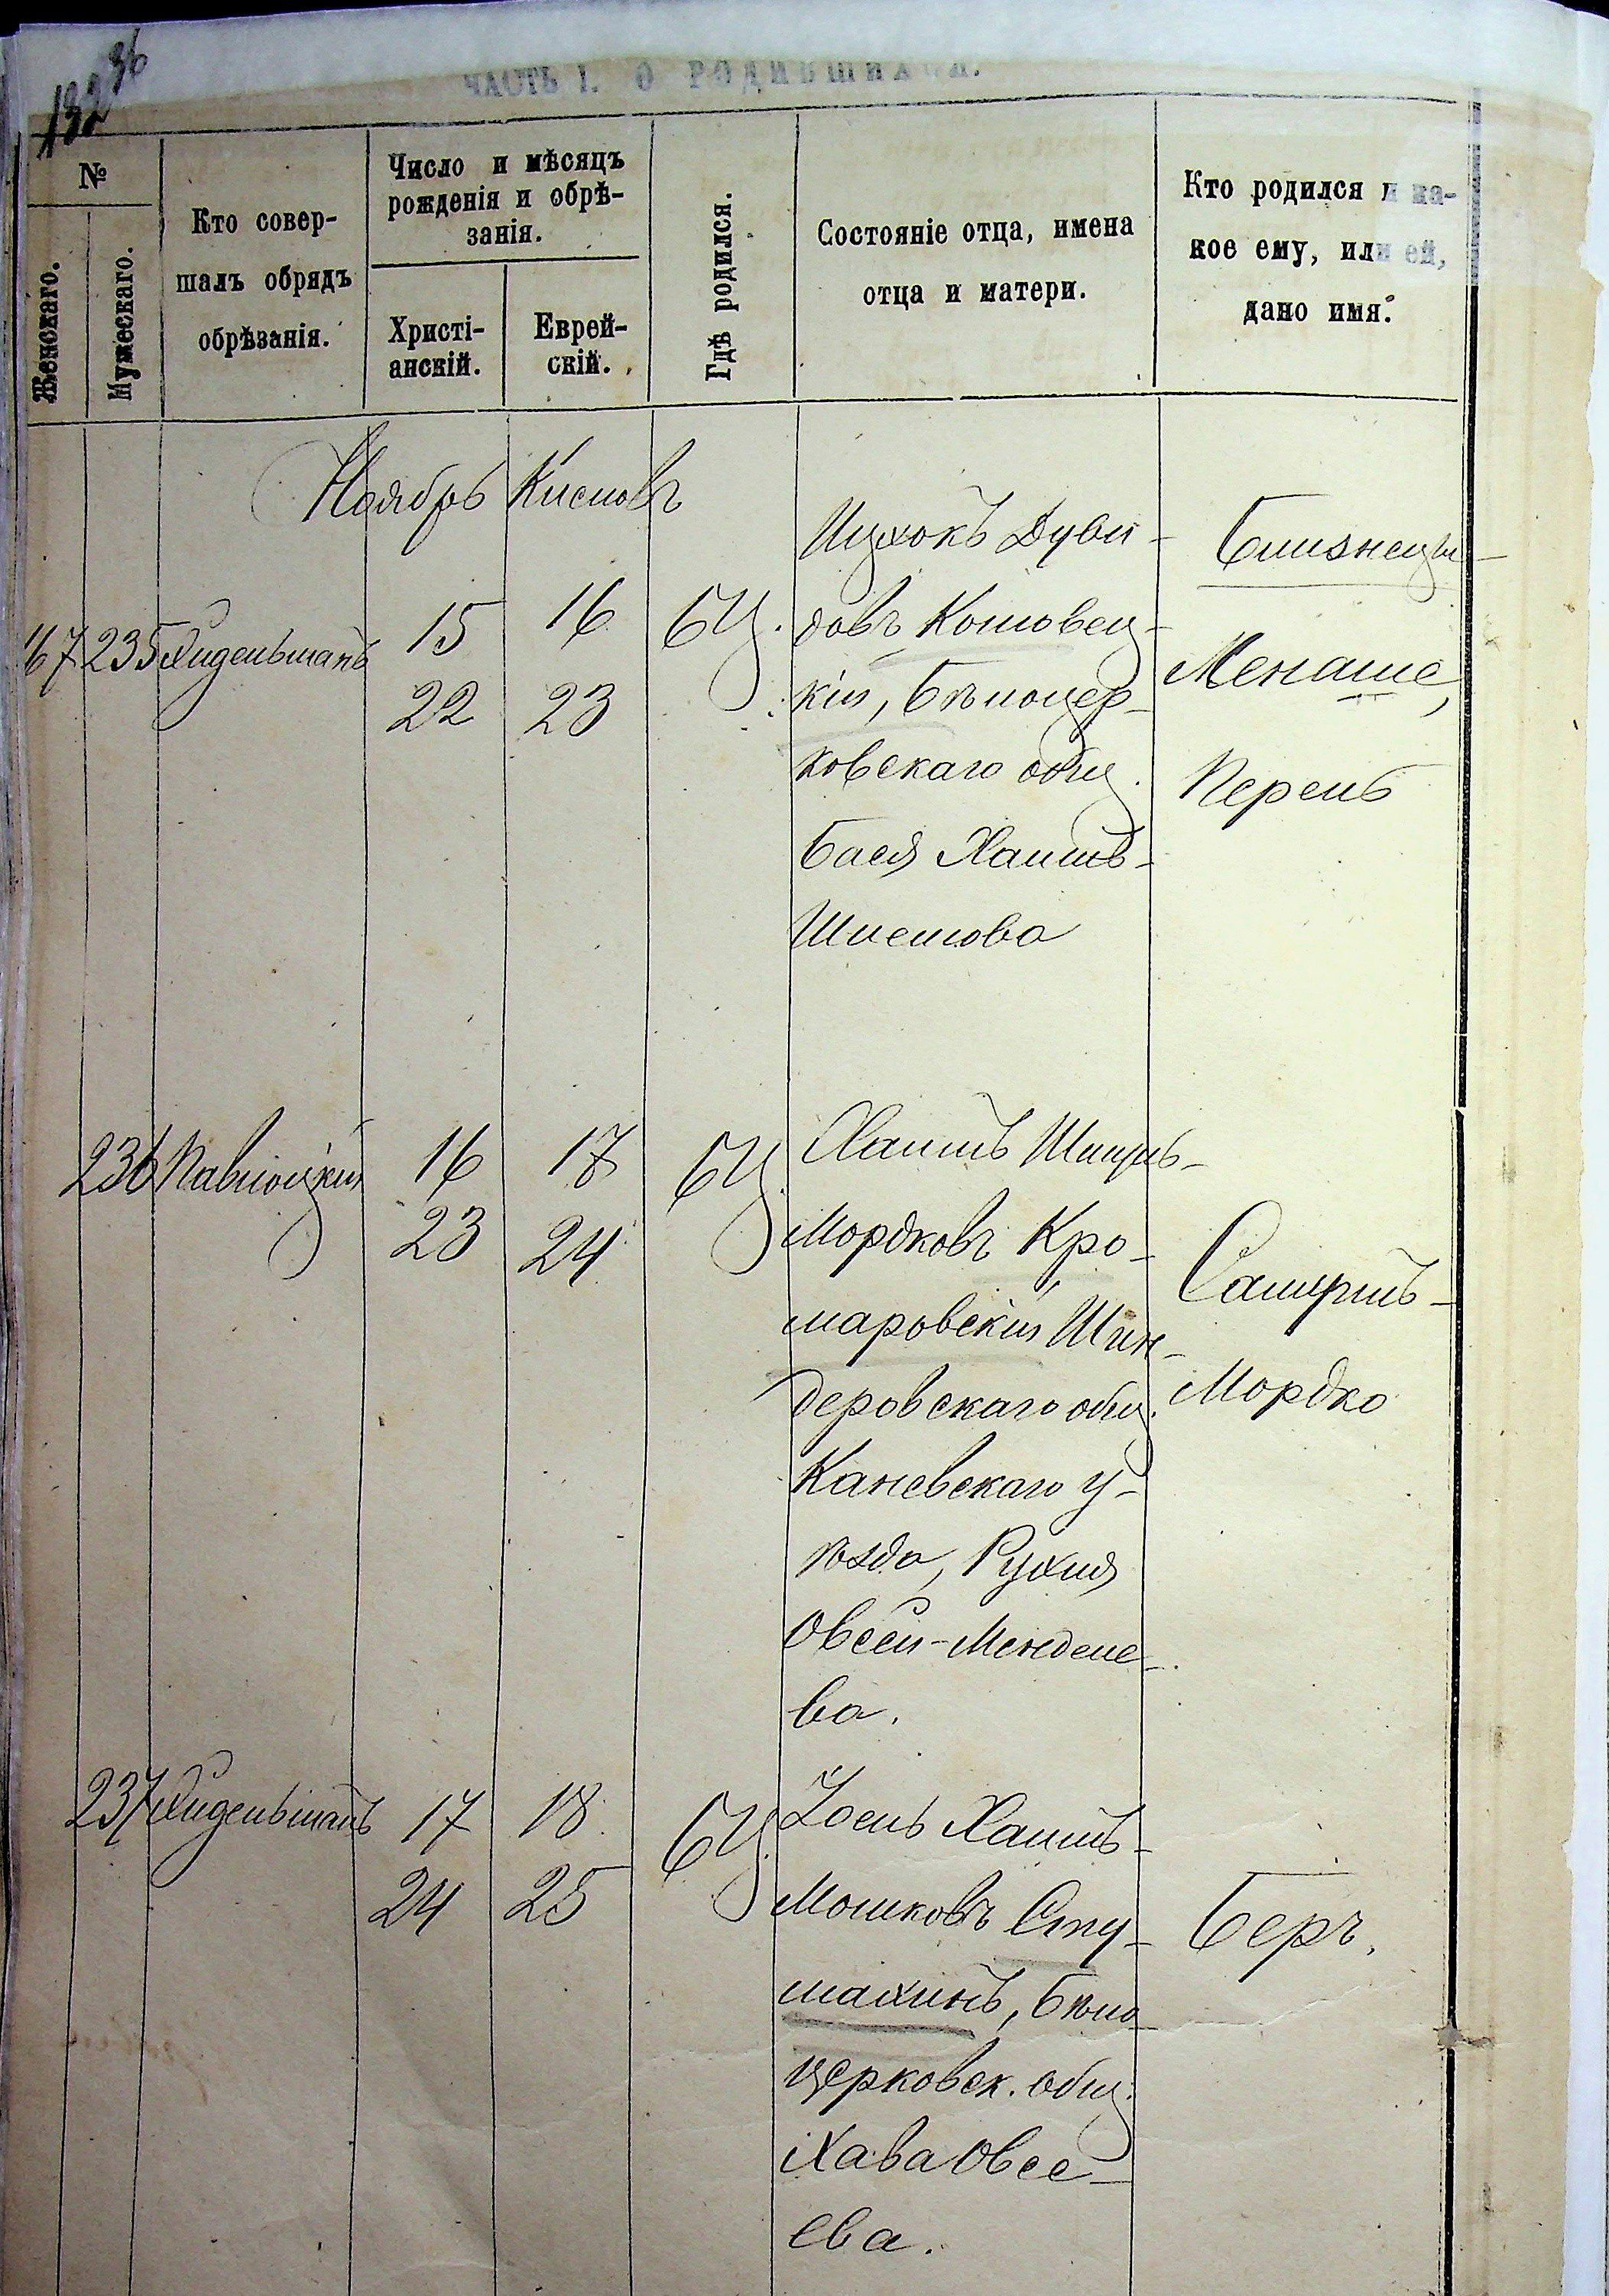 132 36
ЧАСТЬ I. О РОДИВШИХСЯ.
№
Женскаго.
Мужескаго.
Кто совер-
шалъ обрядъ
обрѣзанія.
Число и мѣсяцъ
рожденія и обрѣ-
занія.
Христі-
анскій.
Еврей-
скій.
Гдѣ родился.
Состояніе отца, имена
отца и матери.
Кто родился и ка-
кое ему, или ей,
дано имя.
Ноябрь Кислевъ
235
15 16
22 23
БЦ.
Ицхокъ Дуви-
довъ Котовец-
кій, Бѣлоцер-
ковскаго общ.
Бася Хаимъ-
Шлемова
Близнецы-
Менаше,
Перель
236 Павлоцкій
16 17
23 24
БЦ.
Хаимъ Шицлъ-
Мордковъ Кро-
маровскій Шан-
деровскаго общ.
Каневскаго у-
ѣзда, Рухля
Овсей-Менделе-
ва.
Мордко
237
17 18
24 25
БЦ.
Іосль Хаимъ-
Мошковъ Сту-
махинъ, Бѣло-
церковск. общ.
Хава Овсе-
ева.
Беръ.